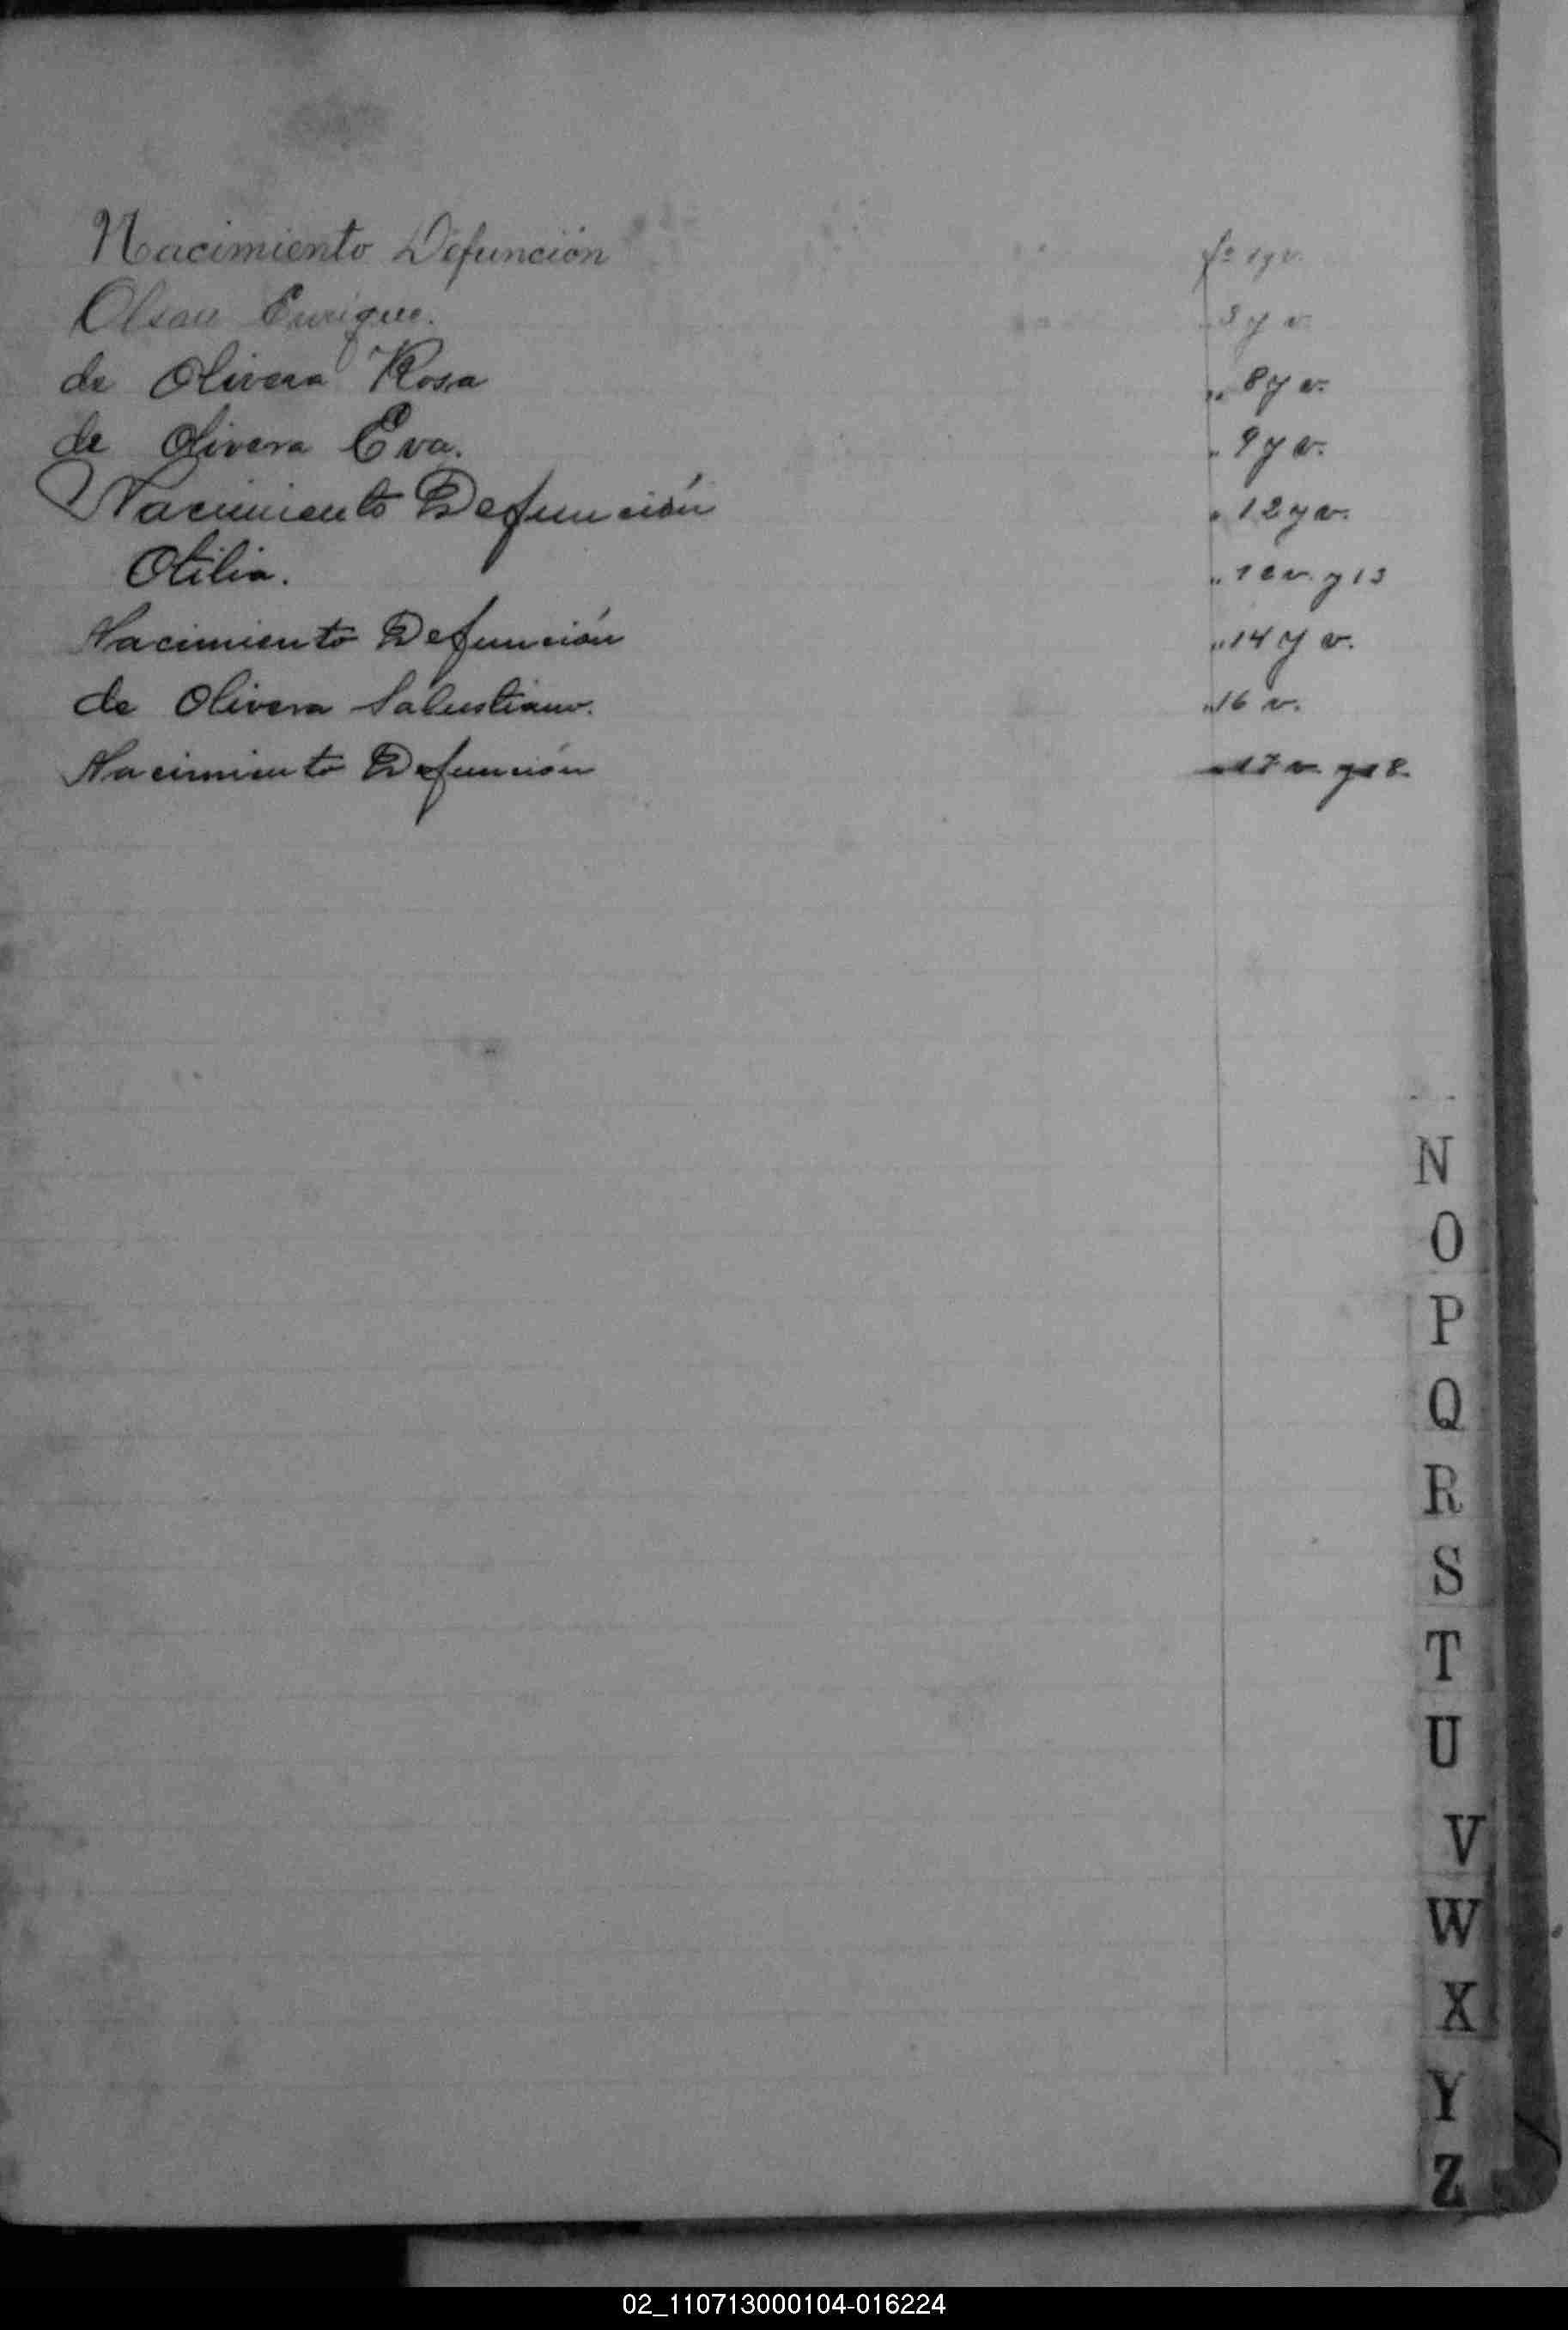 Nacimiento Defunción fº 1 y v.
Olsau Enrique. " 3 y v.
de Olivera Rosa " 8 y v.
de Olivera Eva. " 9 y v.
Nacimiento Defunción " 12 y v.
Otilia. " 12 v. y 13
Nacimiento Defunción " 14 y v.
de Olivera Salustiano. " 16 v.
Nacimiento Defunción " 17 v. y 18.
N
O
P
Q
R
S
T
U
V
W
X
Y
Z
02_110713000104-016224